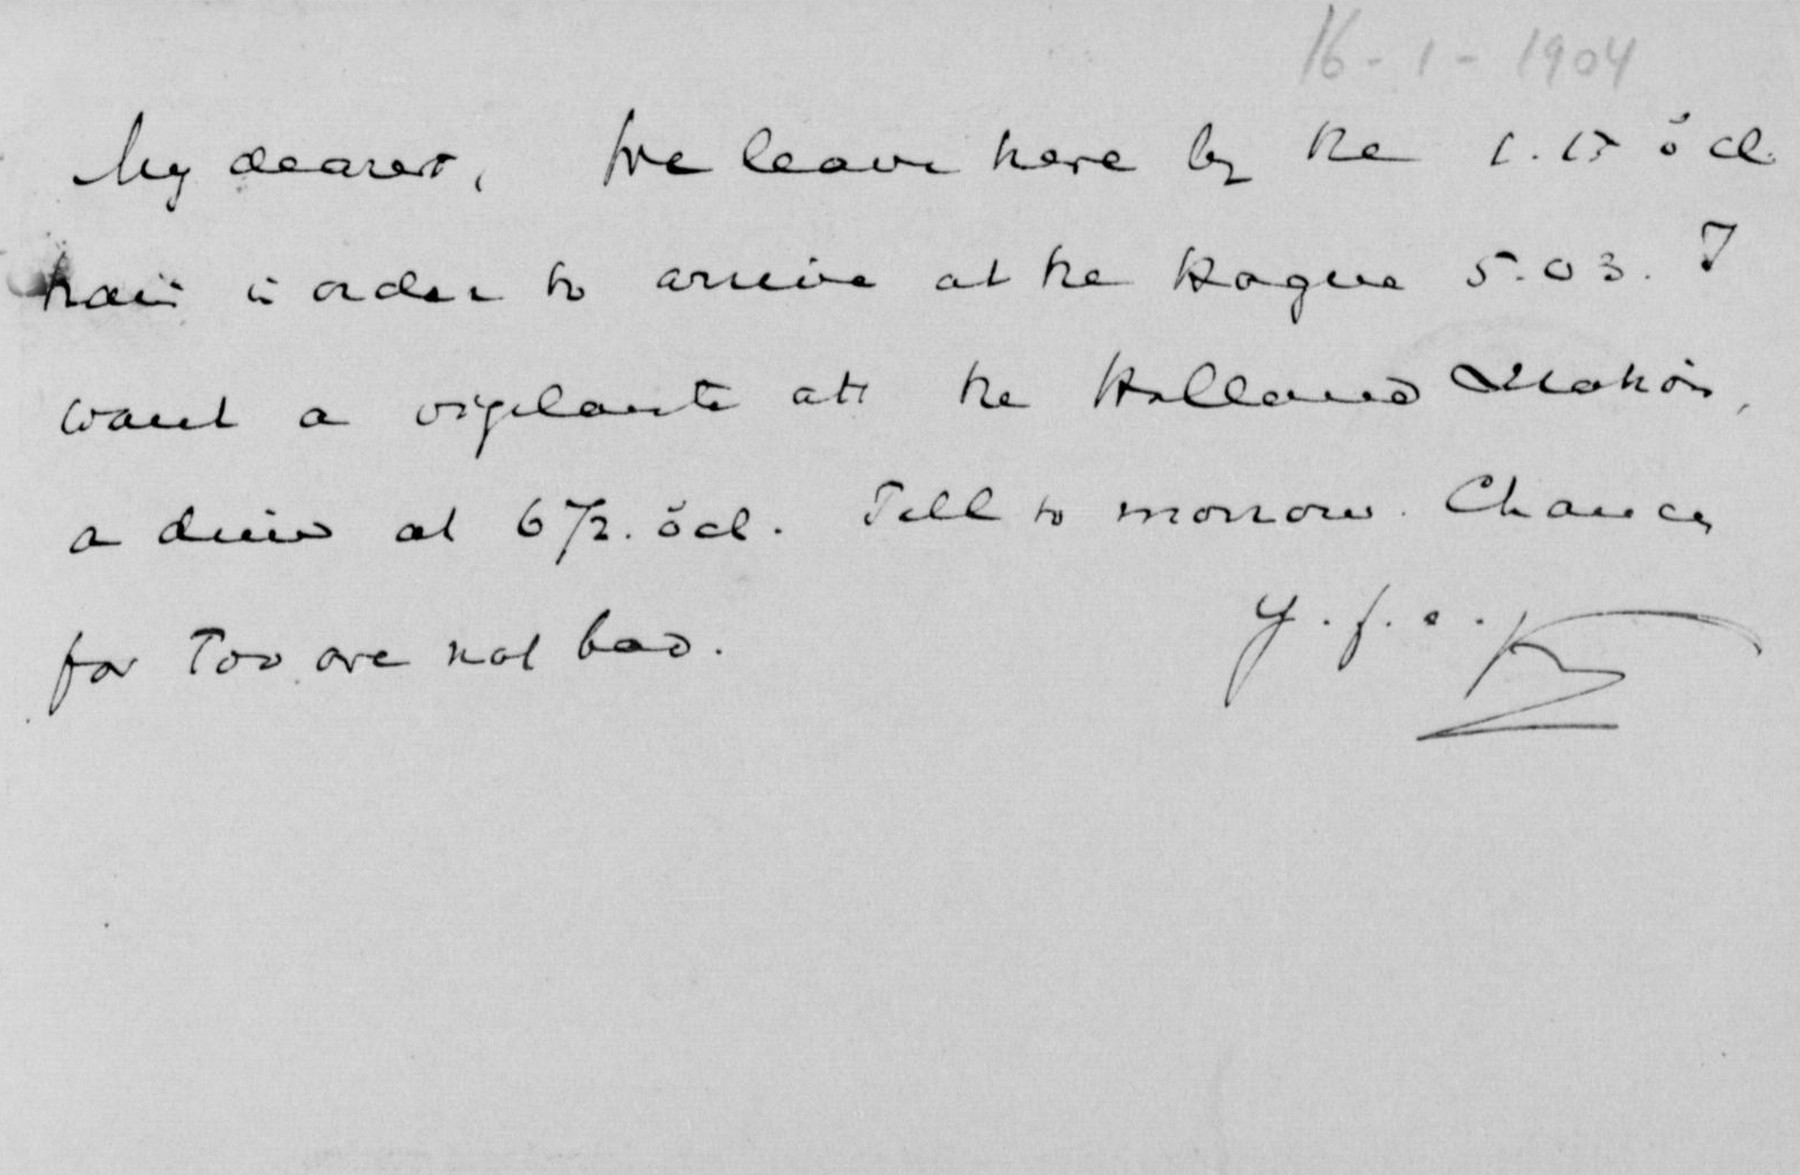 16-1-1904
My dearest, We leave here by the 1.15 ócl.
train in order to arrive at the Hague 5.03. I
want a vigilante at the Holland Station,
a diner at 6 1/2. ócl. Till to morrow. Chances
for Too are not bad.
y. f. e.